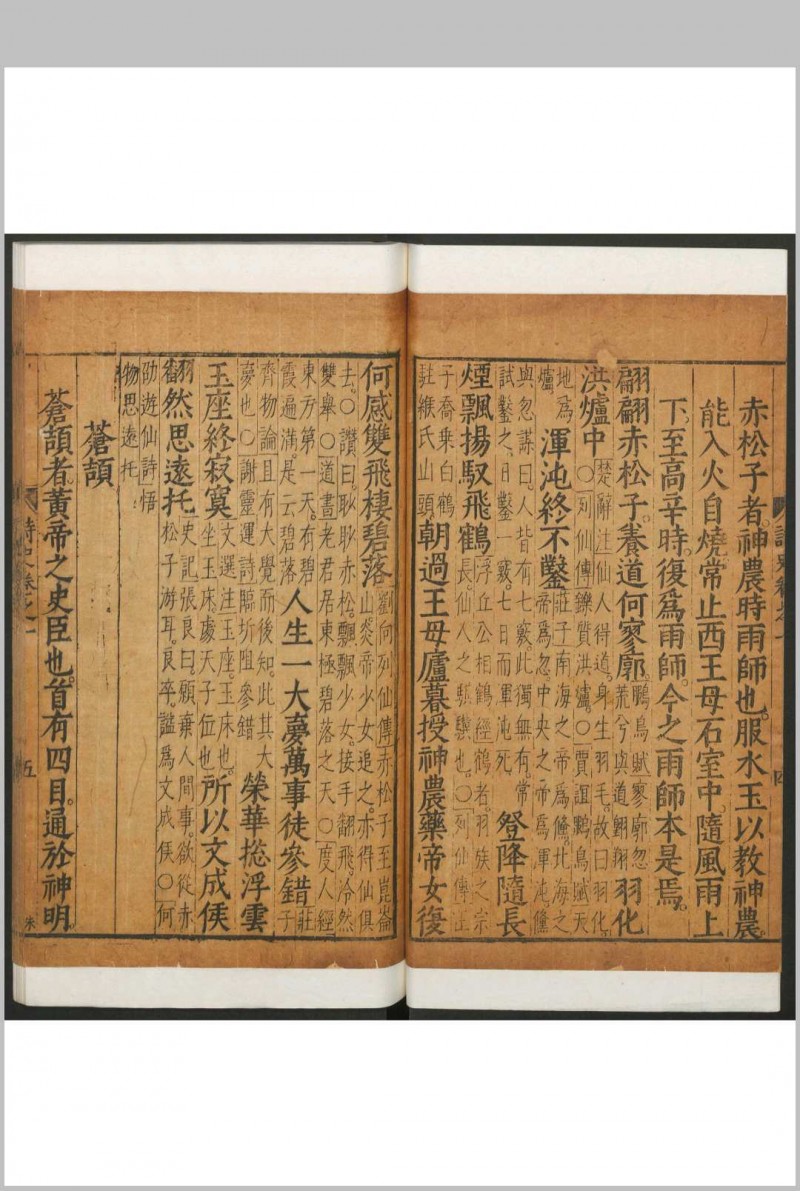 赤松子者。神農時雨師也。服水玉以教神農。
能入火自燒。常止西王母石室中。隨風雨上
下。至高辛時。復爲雨師。今之雨師本是焉。
翩翩赤松子。養道何寥廓。鵬鳥賦寥廓忽荒兮與道翺翔羽化
洪爐中楚辭注仙人得道。身生羽毛。故曰羽化。○列仙傳鑠質洪爐○賈誼鵬鳥賦天
地爲爐渾沌終不鑿莊子南海之帝爲儵。北海之帝爲忽。中央之帝爲渾沌儵
與忽謀曰。人皆有七竅。此獨無有。常試鑿之。日鑿一竅。七日而渾沌死登降隨長
煙飄揚馭飛鶴浮丘公相鶴經鶴者。羽族之宗長。仙人之騏驥也。○列仙傳王
子喬乘白鶴駐緱氏山頭朝過王母廬暮授神農藥帝女復
何感雙飛棲碧落劉向列仙傳赤松子至崑崙山炎帝少女追之。亦得仙俱
去。○讚曰。眇眇赤松。飄飄少女。接手翻飛。冷然雙舉○道書老君居東極碧落之天○度人經
東方第一天。有碧霞遍滿。是云碧落人生一大夢萬事徒參錯莊子
齊物論且有大覺而後知。此其大夢也○謝靈運詩臨圻阻參錯榮華捴浮雲
玉座終寂寞文選注玉座。玉床也。坐玉床。處天子位也所以文成侯
翻然思遠托史記張良曰。願棄人間事。欲從赤松子游耳。良卒。謚爲文成侯○何
劭遊仙詩悟物思遠托
蒼頡
蒼頡者。黃帝之史臣也。首有四目。通於神明。
詩史卷之一
五
朱